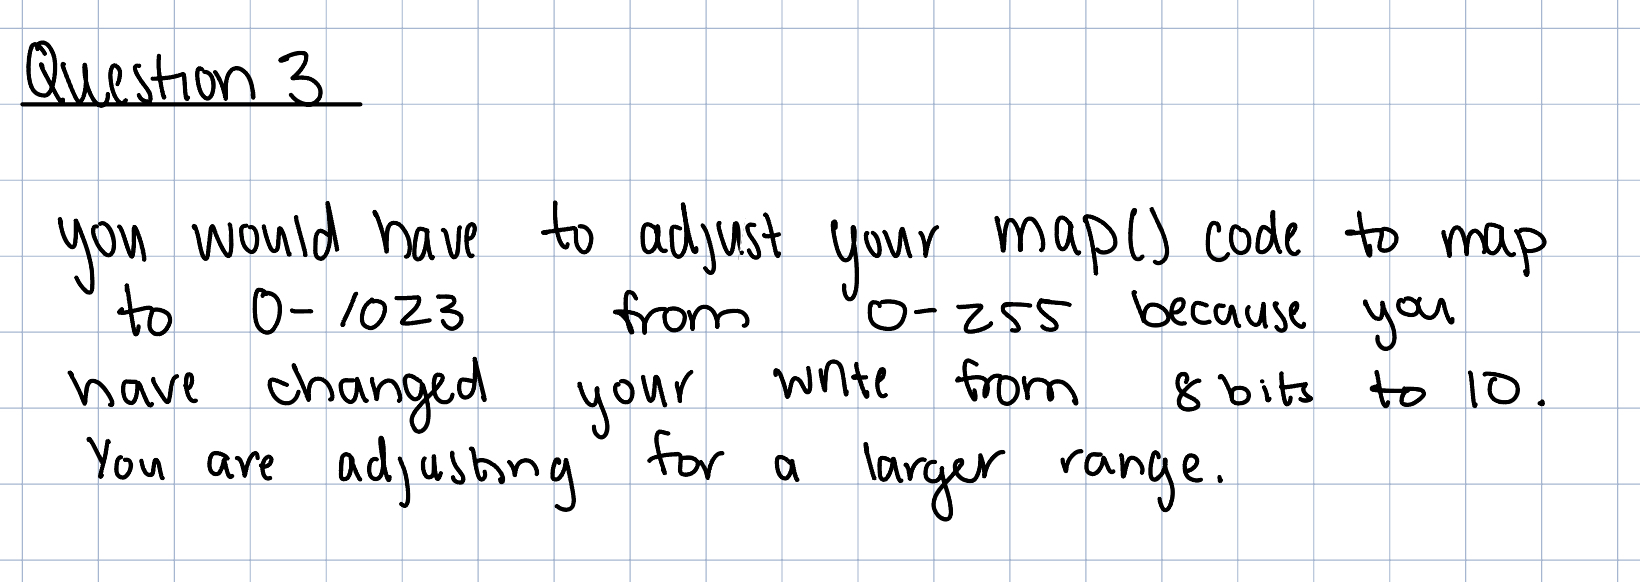 Question 3
you would have to adjust your map() code to map
to 0-1023 from 0-255 because you
have changed your write from 8 bits to 10.
You are adjusting for a larger range.